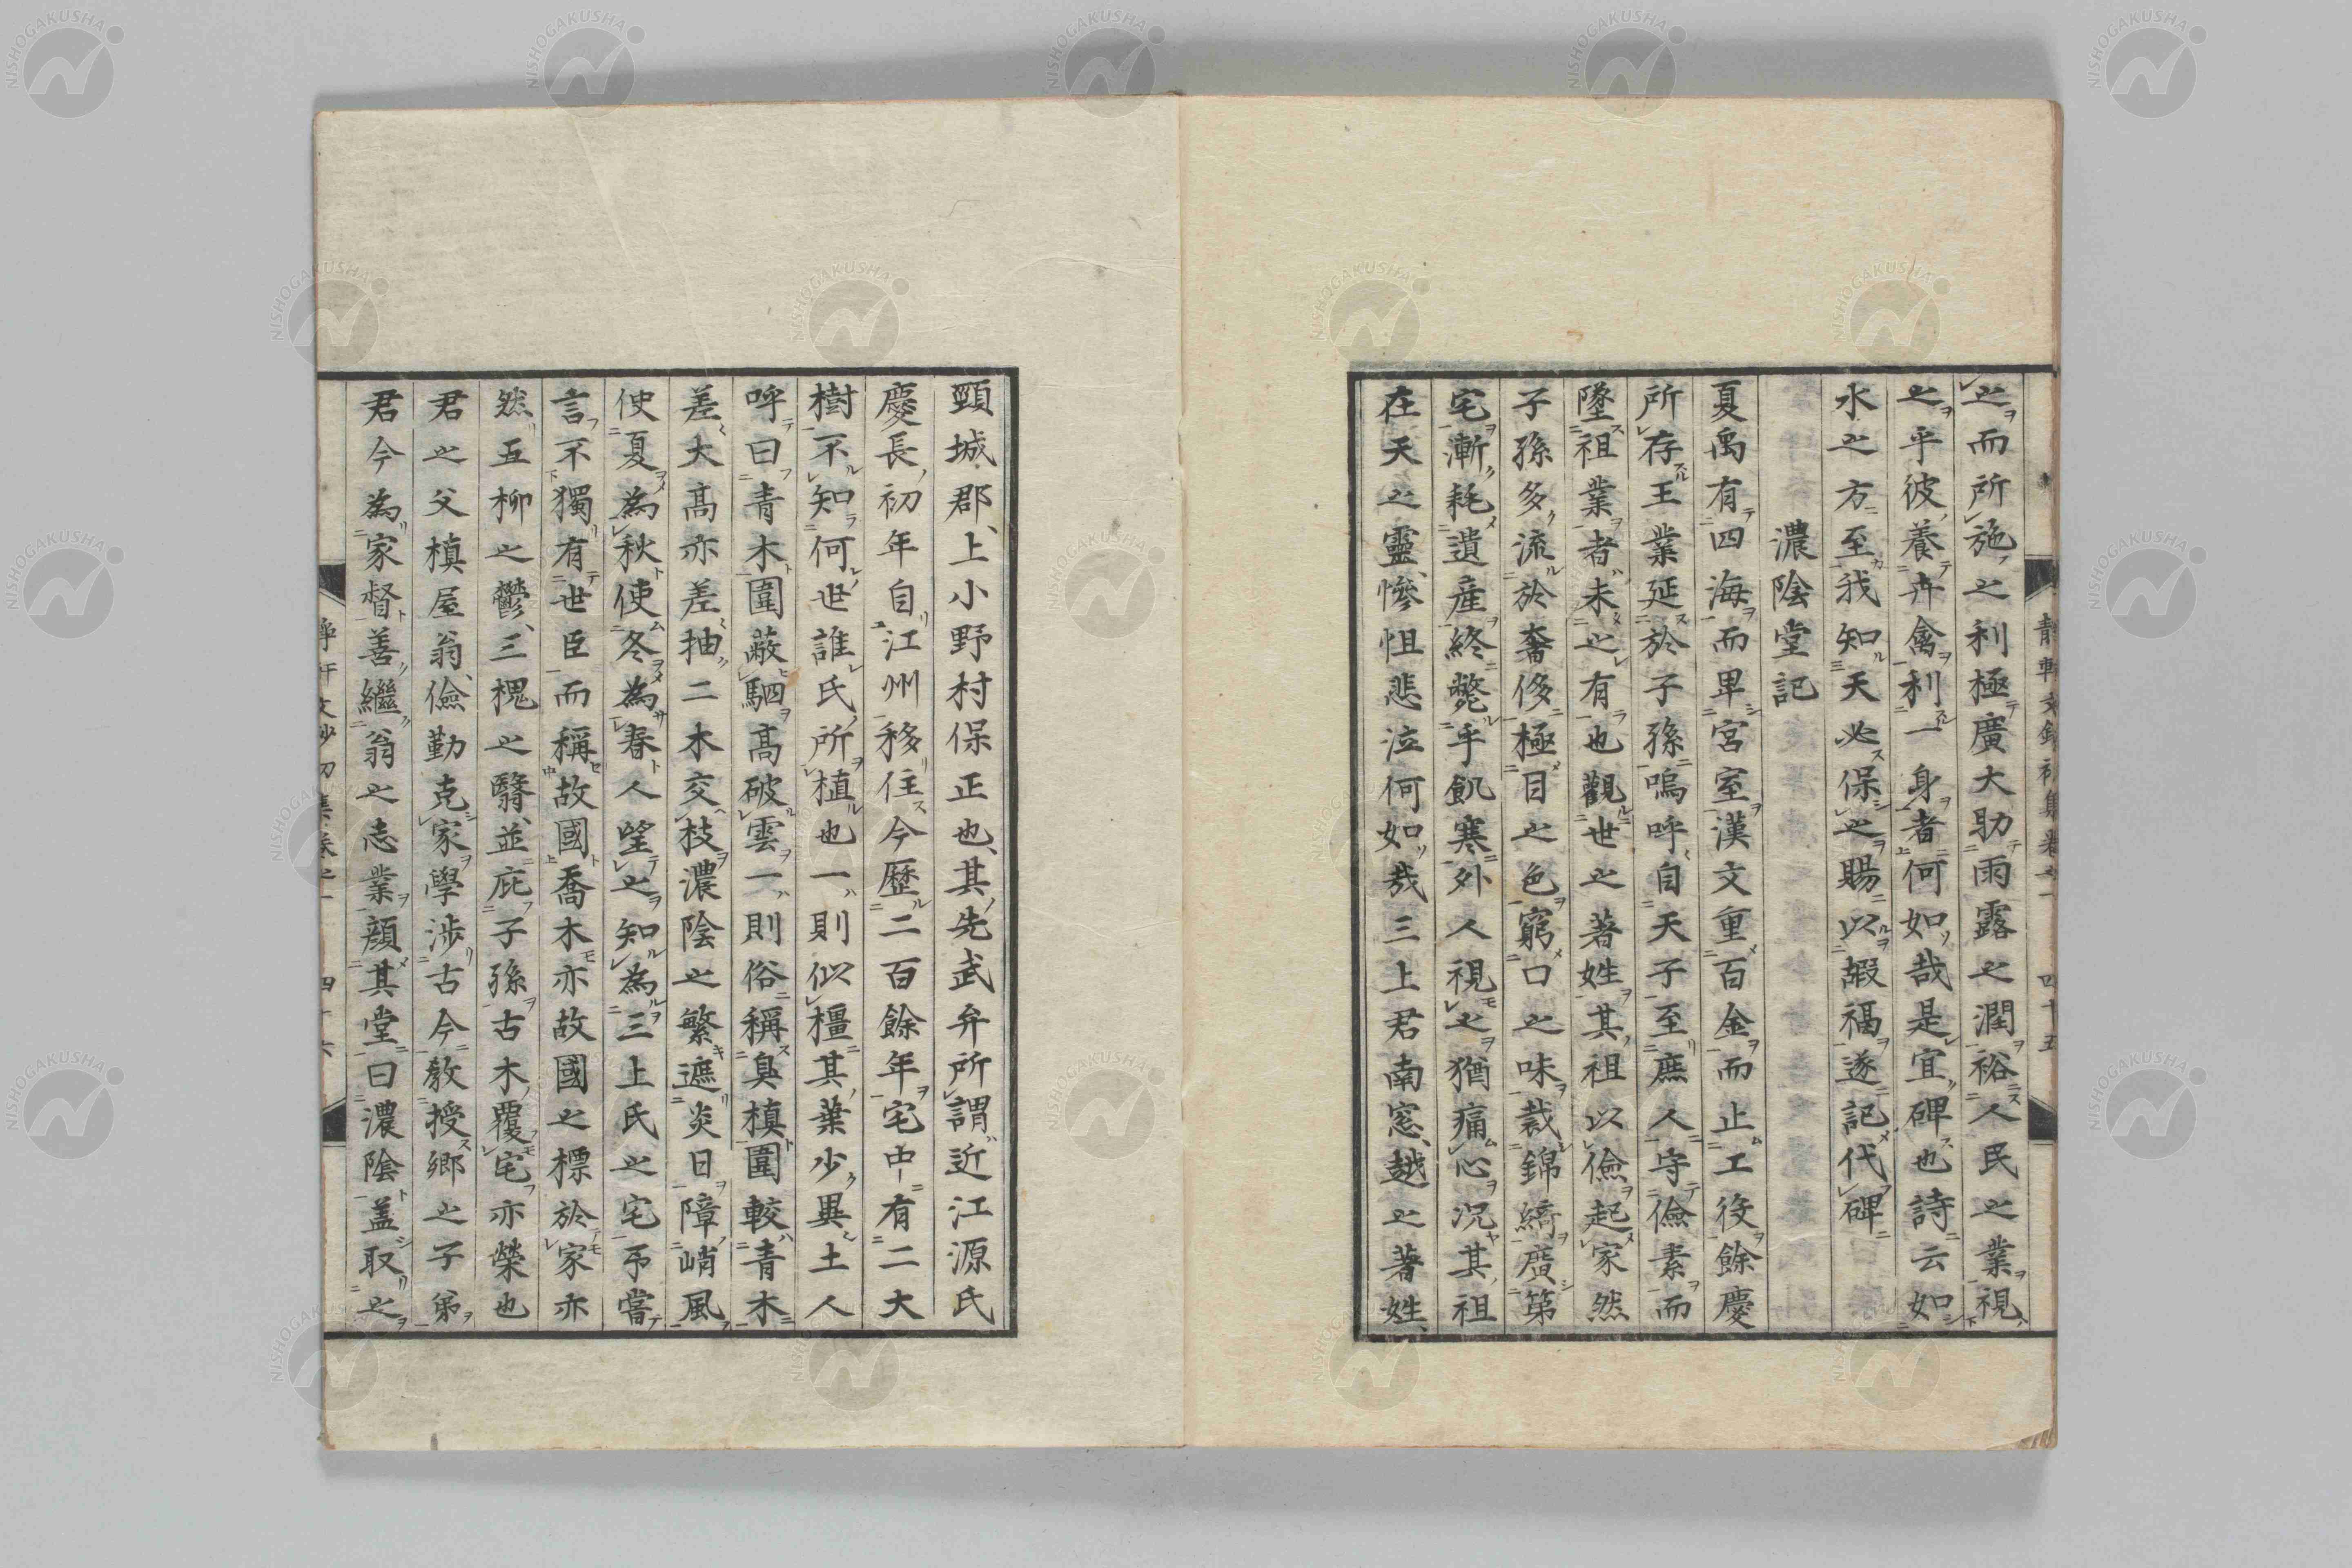 之而所施之利極廣大助雨露之潤裕人民之業視
之乎彼養卉禽利一身者何如哉是宜碑也詩云如
水之方至我知天必保之賜以嘏福遂記代碑
濃陰堂記
夏禹有四海而卑宮室漢文重百金而止工役餘慶
所存王業延於子孫嗚呼自天子至庶人守儉素而
墜祖業者未之有也觀世之著姓其祖以儉起家然
子孫多流於奢侈極目之色窮口之味裁錦綺廣第
宅漸耗遺産終斃乎飢寒外人視之猶痛心況其祖
在天之靈慘怛悲泣何如哉三上君南窓越之著姓
頸城郡上小野村保正也其先武弁所謂近江源氏
慶長初年自江州移住今歷二百餘年宅中有二大
樹不知何世誰氏所植也一則似橿其葉少異土人
呼曰青木圍蔽駟高破雲一則俗稱臭槙圍較青木
差大高亦差抽二木交枝濃陰之繁遮炎日障峭風
使夏為秋使冬為春人望之知為三上氏之宅予嘗
言不獨有世臣而稱故國喬木亦故國之標於家亦
然五柳之鬱三槐之翳並庇子孫古木覆宅亦榮也
君之父槙屋翁儉勤克家學涉古今教授鄉之子弟
君今為家督善繼翁之志業顏其堂曰濃陰蓋取之
四十五
NISHOGAKUSHA